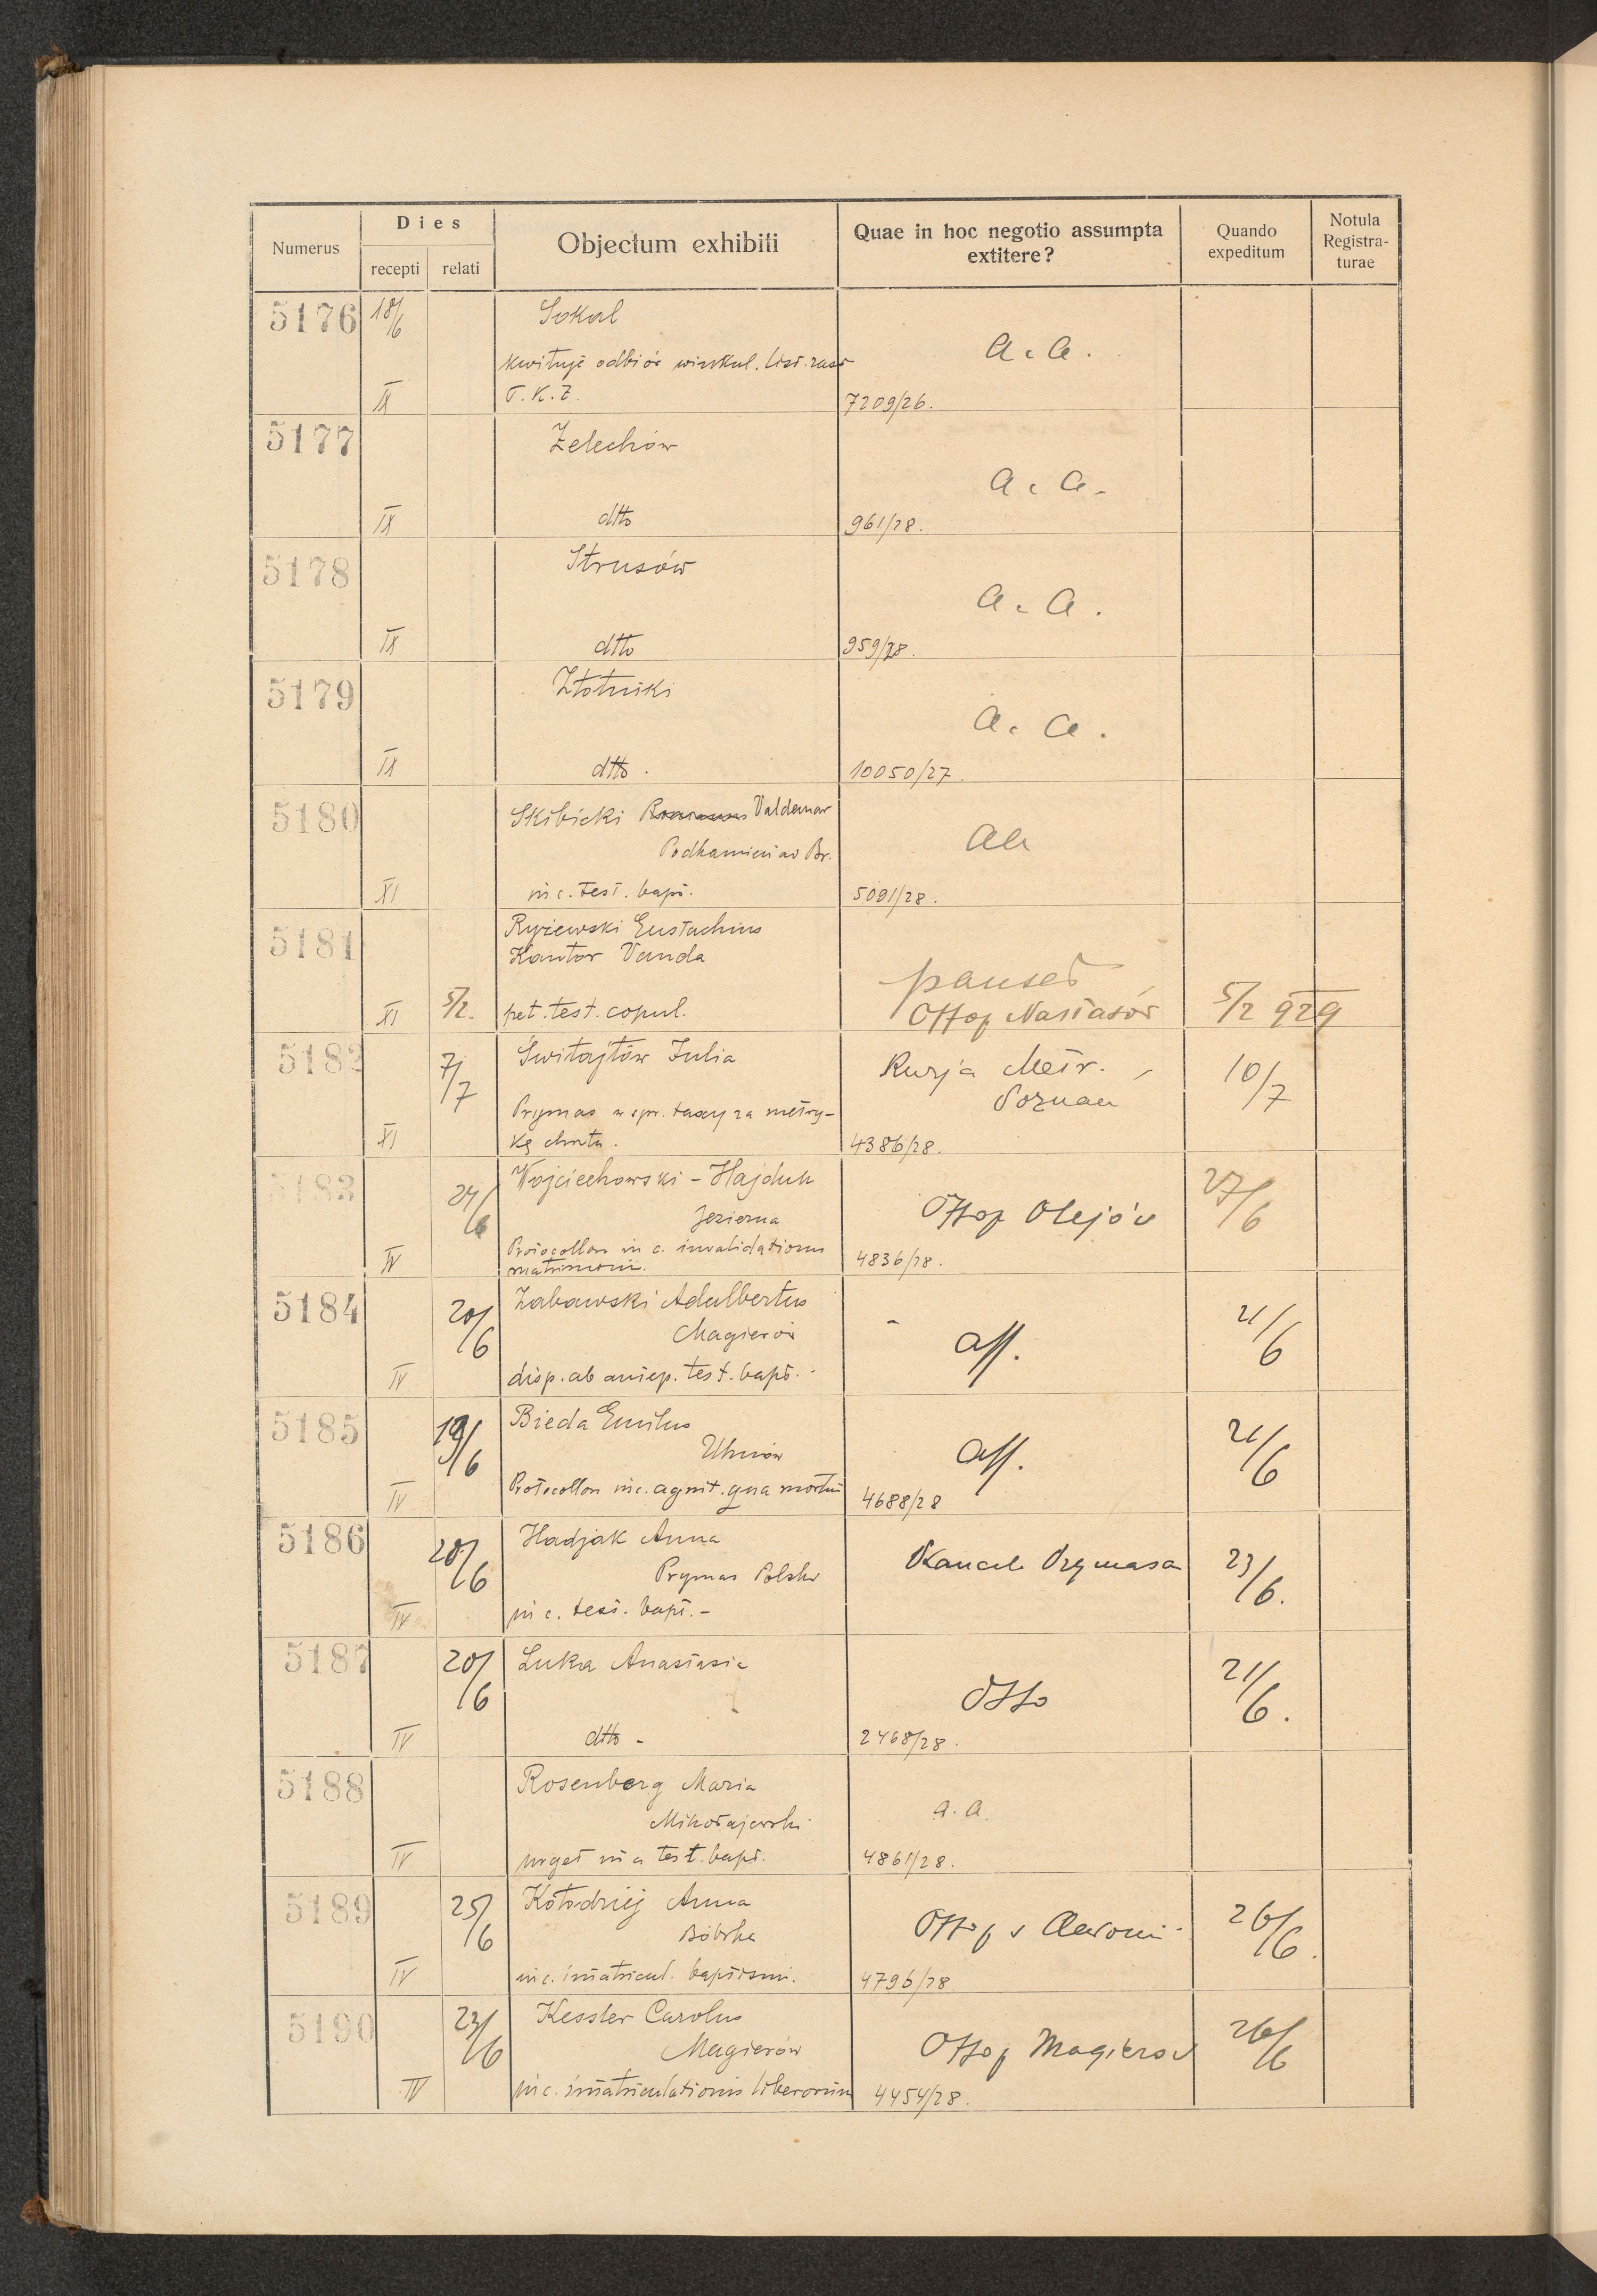 Numerus
Dies
recepti relati
Objectum exhibiti
Quae in hoc negotio assumpta
extitere?
Quando
expeditum
Notula
Registra-
turae
5176 18/6 Sokal
kwituje odbiór winkul. list. zast
T.K.Z.
a. a.
IX 7209/26.
5177 Żelechów
a. a.
IX dtto 961/28.
5178 Strusów
a. a.
IX dtto 959/28.
5179 Złotniki
a. a.
IX dtto. 10050/27
5180 Skibicki Valdemar
Podkamień ad Br.
aa
XI in c. test. bapt. 5091/28.
5181 Ryżewski Eustachius
Kantor Vanda
XI 5/2. pet. test. copul.
Nastasów 5/2 929
5182 7/7 Świtajłów Julia
Kurja Metr.
Poznań 10/7
Prymas w spr. taxy za metry-
XI kę chrztu. 4386/28.
5183 24/6 Wojciechowski - Hajduk
Jezierna
Ottop Olejów 27/6
IV Protocollon in c. invalidationis
matrimonii. 4836/28.
5184 20/6 Zabawski Adalbertus
Magierów
aff. 21/6
IV disp. ab antep. test. bapt.
5185 19/6 Bieda Emilus
Uhnów
aff. 21/6
IV Protocollon in c. agnit. qua mortui 4688/28
5186 20/6 Hadjak Anna
Prymas Polski
Kancel. Prymasa 23/6.
IV in c. test. bapt. -
5187 20/6 Luka Anastasia
Otto 21/6.
IV dtto - 2468/28.
5188 Rosenberg Maria
Mikołajewski
a. a.
IV urget in c. test. bapt. 4861/28.
5189 25/6 Kołodziej Anna
Bóbrka
26/6.
IV in c. imatricul. baptismi. 4796/28
5190 23/6 Kessler Carolus
Magierów
Ottop Magierów 26/6
IV in c. imatriculationis liberorum 4454/28.